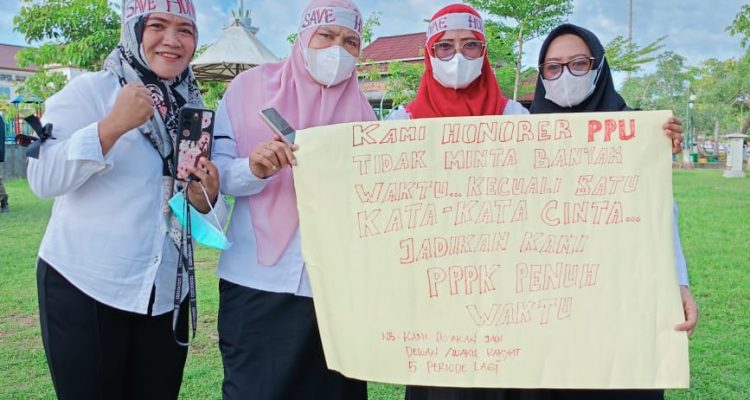 SAVE HON
SAVE HON
KAMI HONORER PPU
TIDAK MINTA BANYAK
WAKTU... KECUALI SATU
KATA-KATA CINTA...
JADIKAN KAMI
PPPK PENUH
WAKTU
NB: KAMI DOAKAN JADI
DEWAN/WAKIL RAKYAT
5 PERIODE LAGI